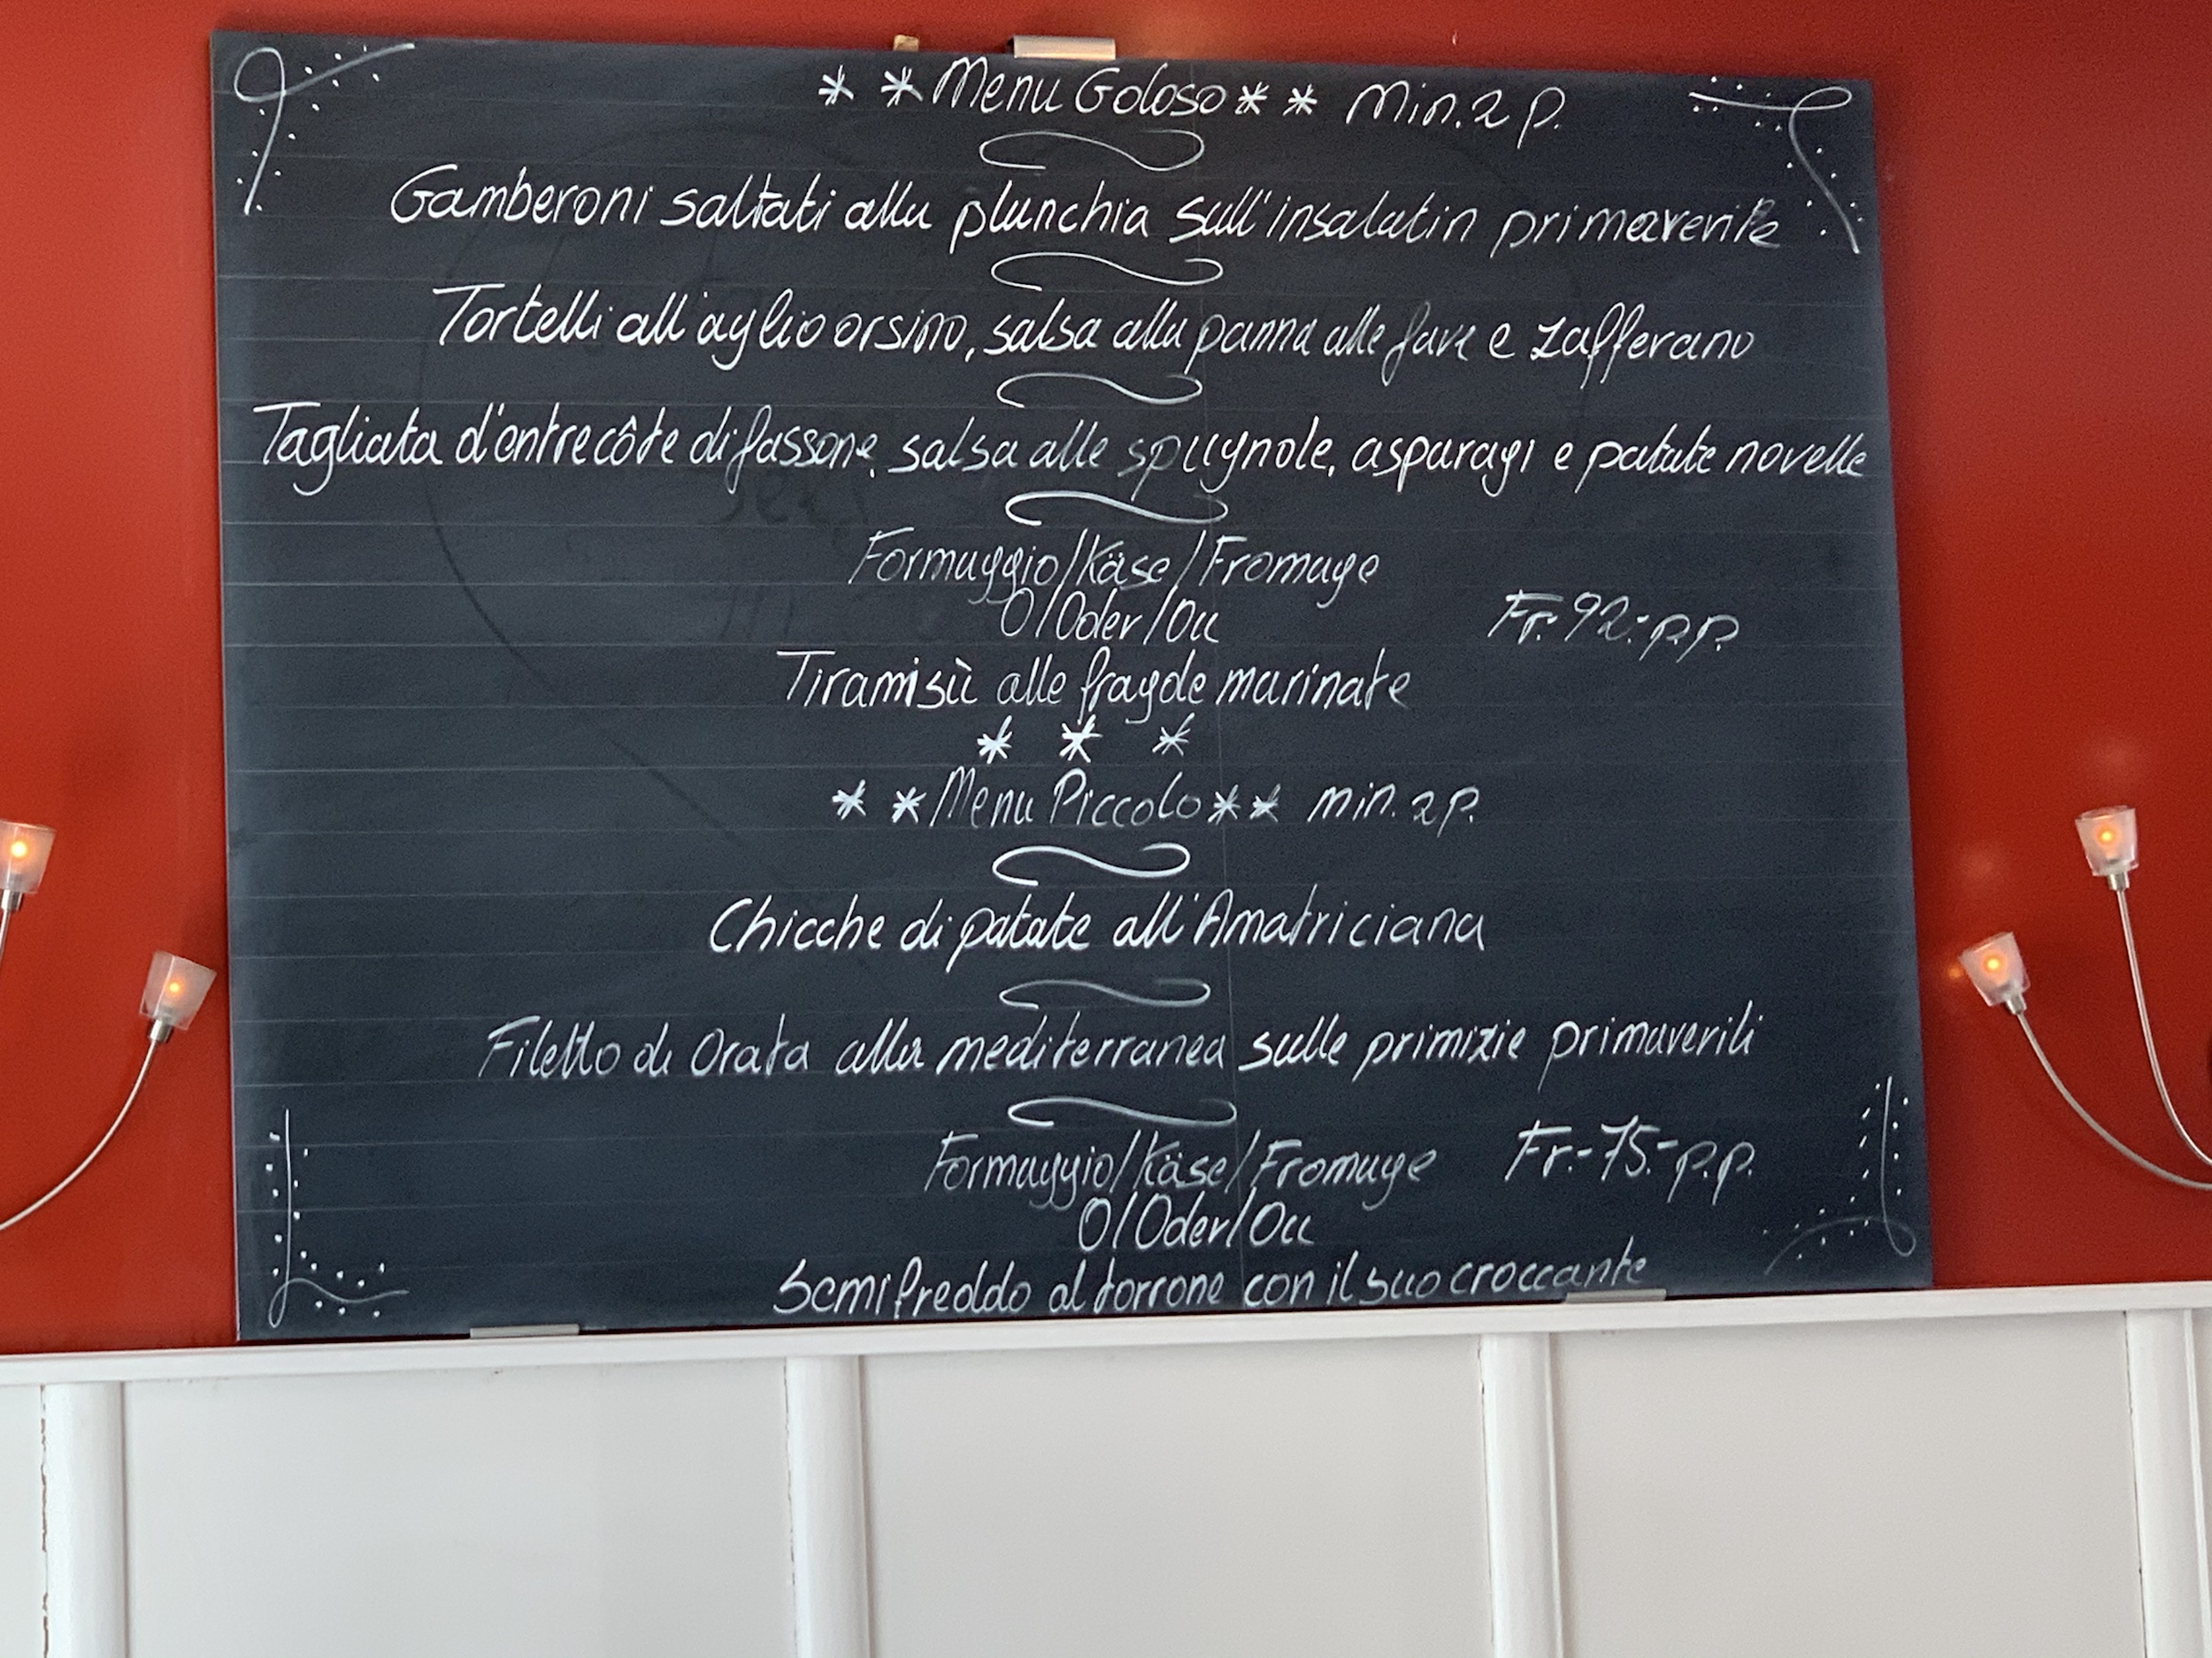 * * Menu Goloso * * Min. 2 P.
Gamberoni saltati alla planchia sull'insalatin primaverile
Tortelli all'aglio orsino, salsa alla panna alle fave e zafferano
Tagliata d'entrecôte di fassone, salsa alle spugnole, asparagi e patate novelle
Formaggio/Käse/Fromage
O/Oder/Ou
Fr. 92.- p.p.
Tiramisù alle fragole marinate
* * *
* * Menu Piccolo * * min. 2 P.
Chicche di patate all'Amatriciana
Filetto di Orata alla mediterranea sulle primizie primaverili
Formaggio/Käse/Fromage Fr.- 75.- p.p.
O/Oder/Ou
Semifreddo al torrone con il suo croccante